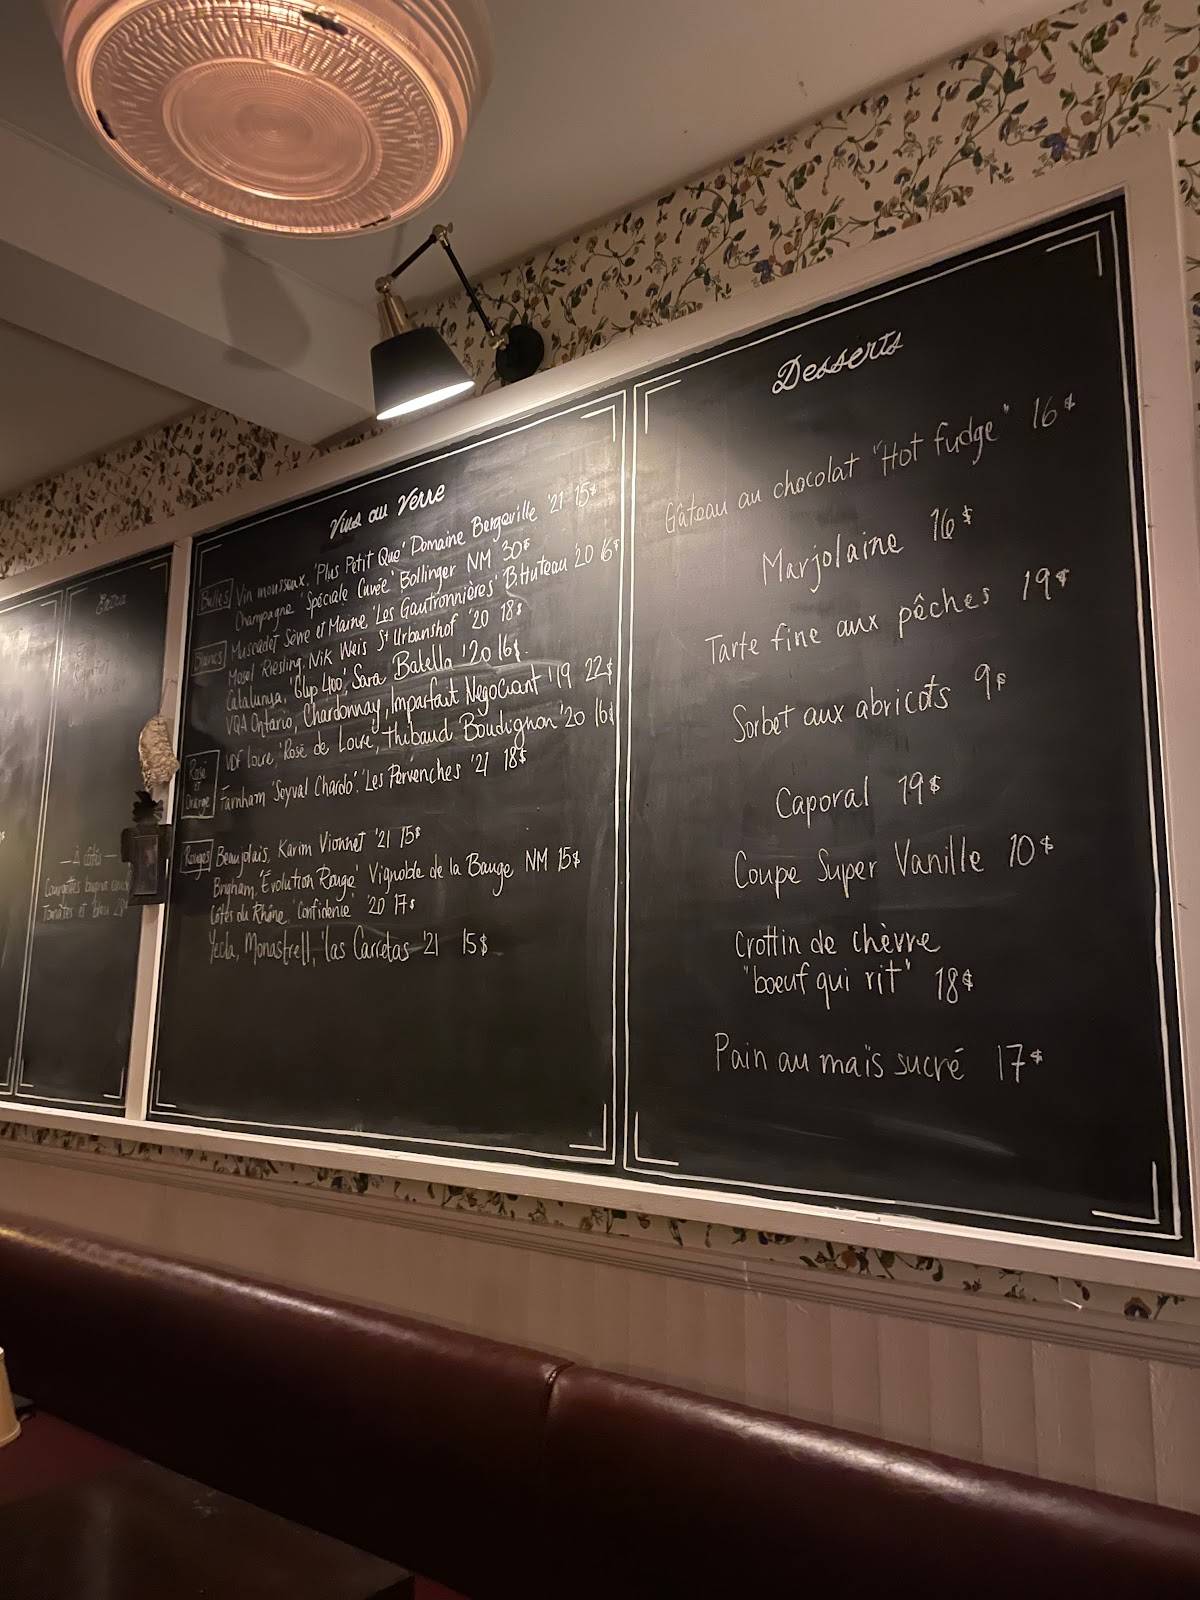 Extra
— À côtés —
Tomates et bleu
Vins au Verre
Bulles
Vin mousseux, 'Plus Petit Que' Domaine Bergeville '21 15$
Champagne 'Spéciale Cuvée' Bollinger NM 30$
Blancs
Muscadet Sèvre et Maine, 'Les Gautronnières' B. Huteau '20 16$
Mosel Riesling, Nik Weis St Urbanshof '20 18$
Catalunya, 'Glup 400', Sara Batella '20 16$
VQA Ontario, Chardonnay, Imparfait Négociant '19 22$
Rosé et Orange
VDF Loire, 'Rosé de Loire', Thibaud Boudignon '20 16$
Farnham 'Seyval Chardo'. 'Les Pervenches '21 18$
Rouges
Beaujolais, Karim Vionnet '21 15$
Brigham, 'Évolution Rouge' Vignoble de la Bauge NM 15$
Côtes du Rhône, 'Confidence' '20 17$
Yecla, Monastrell, 'Las Carretas '21 15$
Desserts
Gâteau au chocolat "Hot fudge" 16$
Marjolaine 16$
Tarte fine aux pêches 19$
Sorbet aux abricots 9$
Caporal 19$
Coupe Super Vanille 10$
Crottin de chèvre
"boeuf qui rit" 18$
Pain au maïs sucré 17$